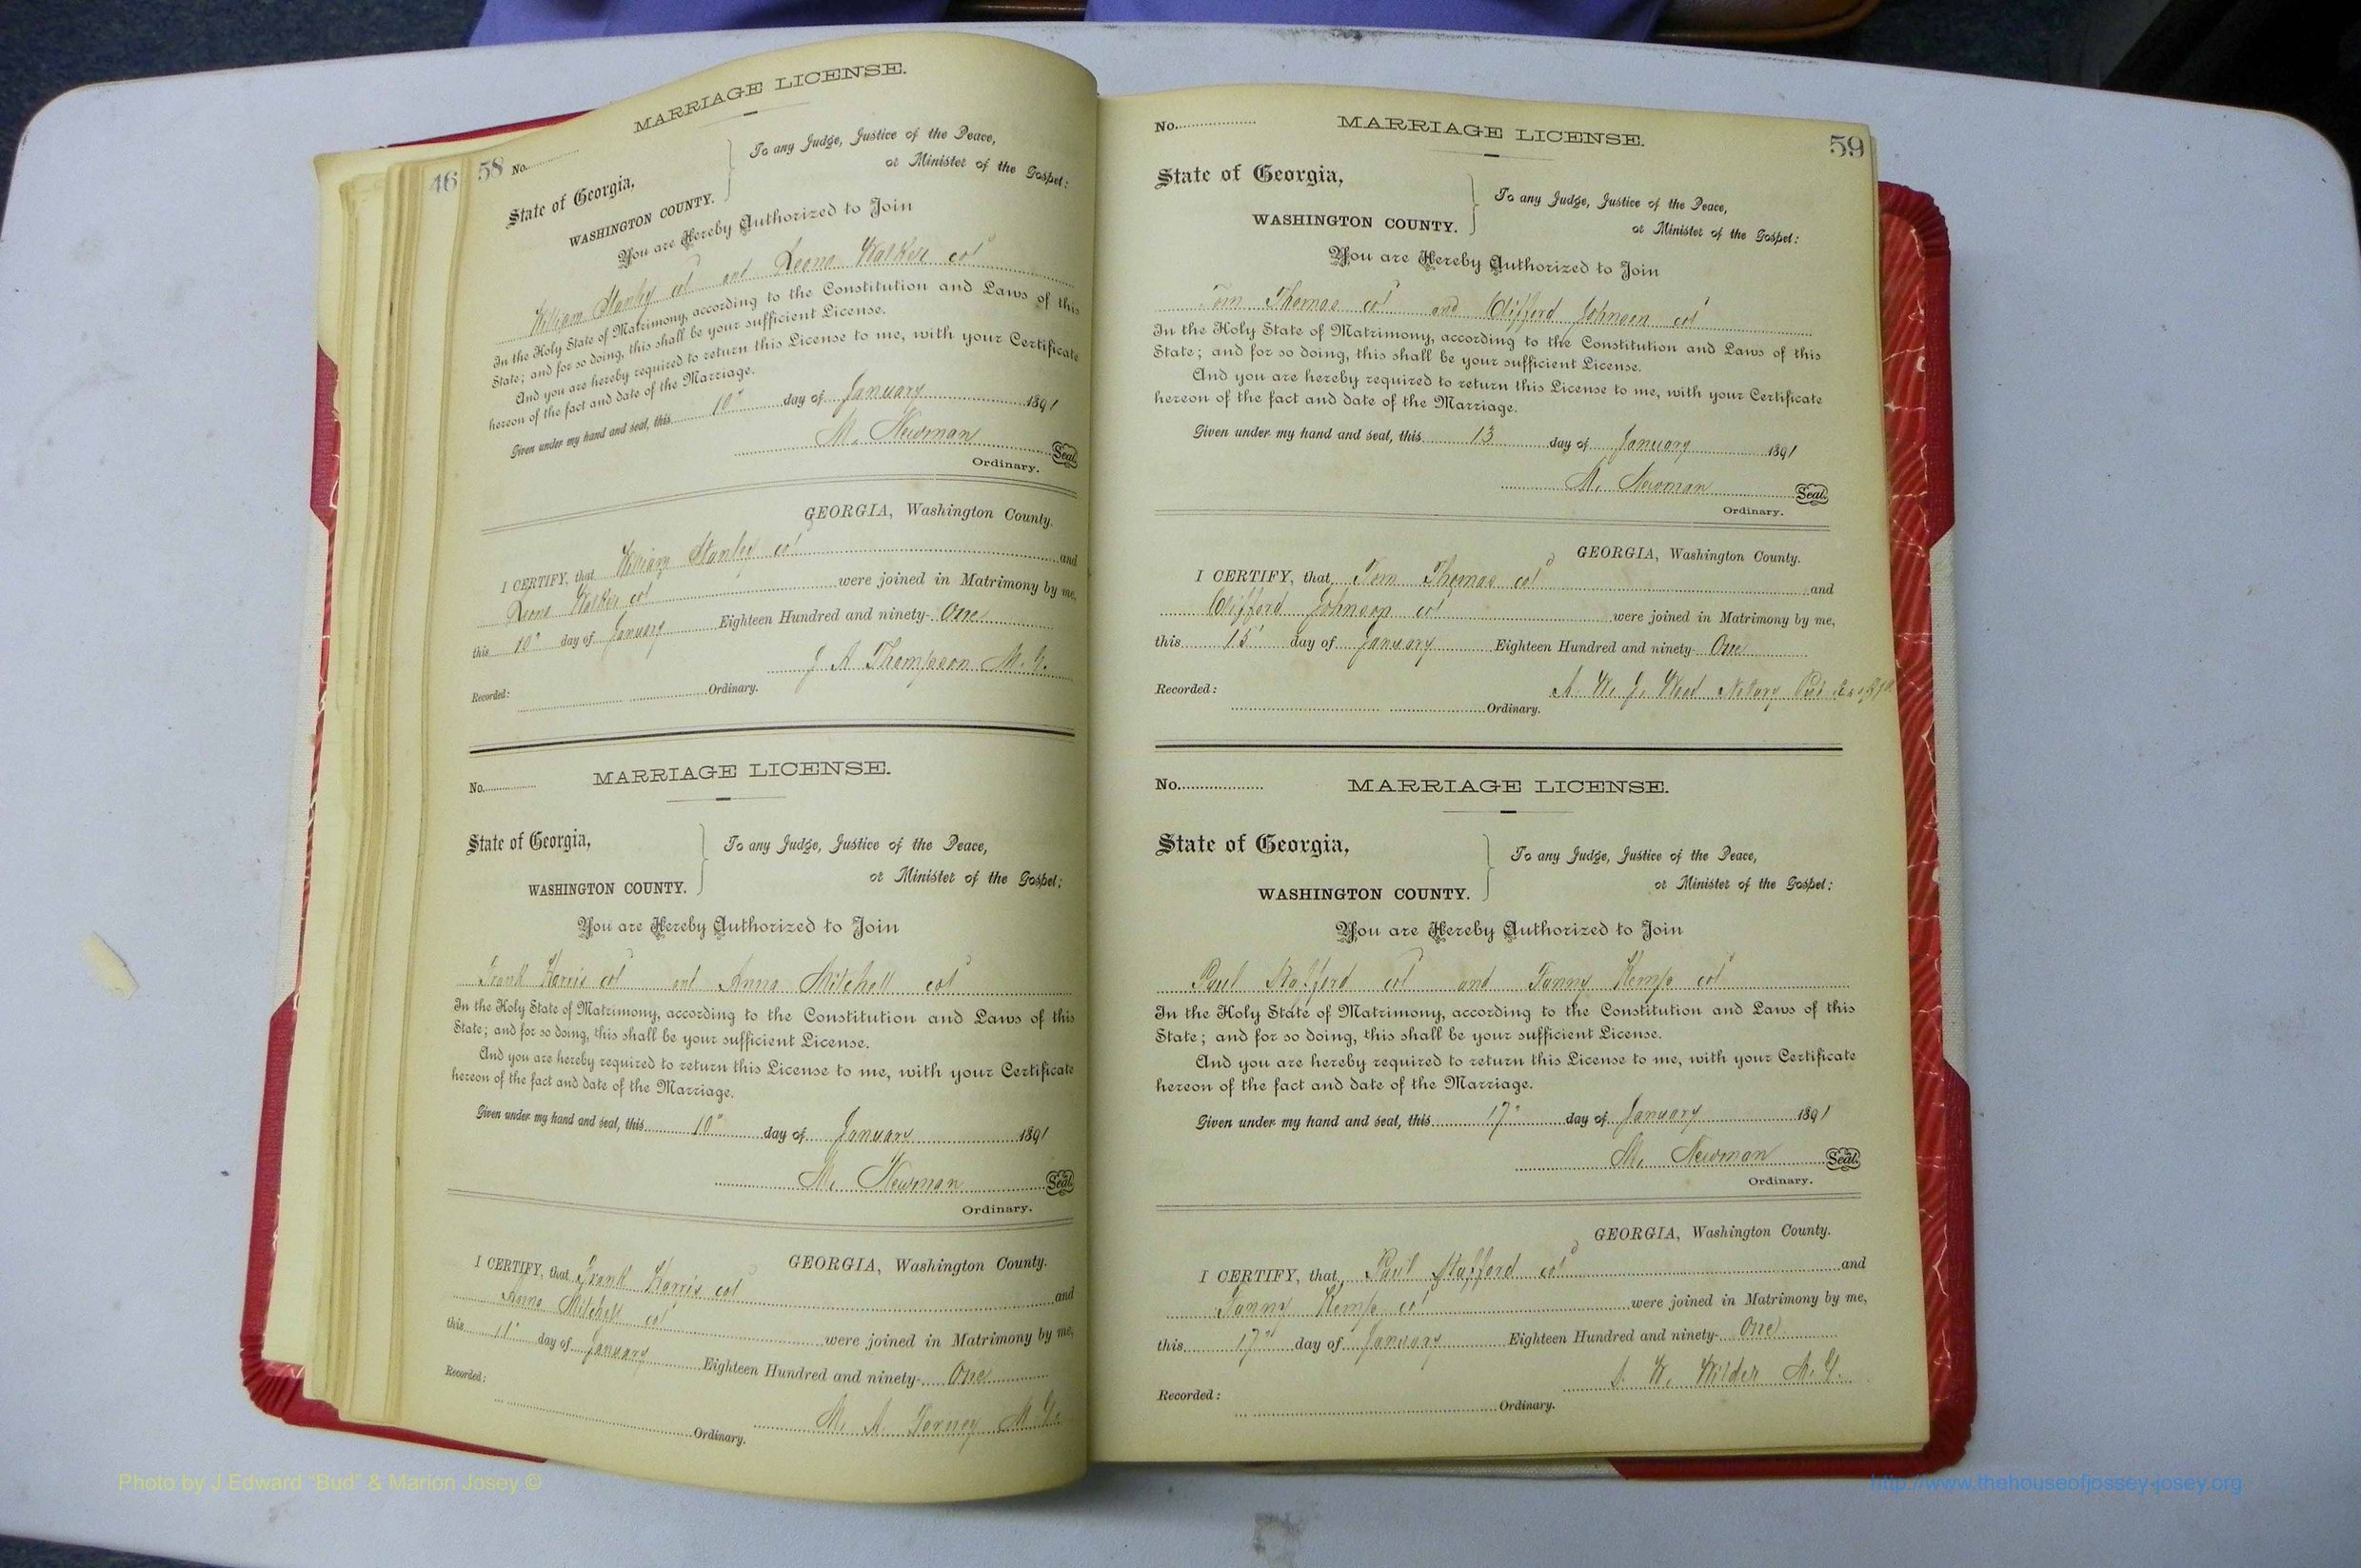 46
58 No.
MARRIAGE LICENSE.
State of Georgia,
WASHINGTON COUNTY.
To any Judge, Justice of the Peace,
or Minister of the Gospel:
You are Hereby Authorized to Join
William Stanley col and Leona Walker col
In the Holy State of Matrimony, according to the Constitution and Laws of this
State; and for so doing, this shall be your sufficient License.
And you are hereby required to return this License to me, with your Certificate
hereon of the fact and date of the Marriage.
Given under my hand and seal, this 10" day of January 1891
M. Newman Seal.
Ordinary.
GEORGIA, Washington County.
I CERTIFY, that William Stanley col and
Leona Walker col were joined in Matrimony by me,
this 10" day of January Eighteen Hundred and ninety- One
J A Thompson M. G.
Recorded: Ordinary.
No. MARRIAGE LICENSE.
State of Georgia,
WASHINGTON COUNTY.
To any Judge, Justice of the Peace,
or Minister of the Gospel:
You are Hereby Authorized to Join
Frank Harris col and Anna Mitchell col
In the Holy State of Matrimony, according to the Constitution and Laws of this
State; and for so doing, this shall be your sufficient License.
And you are hereby required to return this License to me, with your Certificate
hereon of the fact and date of the Marriage.
Given under my hand and seal, this 10" day of January 1891
M. Newman Seal.
Ordinary.
GEORGIA, Washington County.
I CERTIFY, that Frank Harris col and
Anna Mitchell col were joined in Matrimony by me,
this 11" day of January Eighteen Hundred and ninety- One
M. A. M. G.
Recorded: Ordinary.
No. MARRIAGE LICENSE. 59
State of Georgia,
WASHINGTON COUNTY.
To any Judge, Justice of the Peace,
or Minister of the Gospel:
You are Hereby Authorized to Join
Tom Thomas col and Clifford Johnson col
In the Holy State of Matrimony, according to the Constitution and Laws of this
State; and for so doing, this shall be your sufficient License.
And you are hereby required to return this License to me, with your Certificate
hereon of the fact and date of the Marriage.
Given under my hand and seal, this 13 day of January 1891
M. Newman Seal.
Ordinary.
GEORGIA, Washington County.
I CERTIFY, that Tom Thomas col and
Clifford Johnson col were joined in Matrimony by me,
this day of January Eighteen Hundred and ninety- One
W. J. Wood Notary Pub
Recorded: Ordinary.
No. MARRIAGE LICENSE.
State of Georgia,
WASHINGTON COUNTY.
To any Judge, Justice of the Peace,
or Minister of the Gospel:
You are Hereby Authorized to Join
Paul Stafford col and Fanny Kemp col
In the Holy State of Matrimony, according to the Constitution and Laws of this
State; and for so doing, this shall be your sufficient License.
And you are hereby required to return this License to me, with your Certificate
hereon of the fact and date of the Marriage.
Given under my hand and seal, this 17" day of January 1891
M. Newman Seal.
Ordinary.
GEORGIA, Washington County.
I CERTIFY, that Paul Stafford col and
Fanny Kemp col were joined in Matrimony by me,
this 17" day of January Eighteen Hundred and ninety- One
W. Wilder M. G.
Recorded: Ordinary.
Photo by J Edward "Bud" & Marion Josey ©
http://www.thehouseofjossey-josey.org